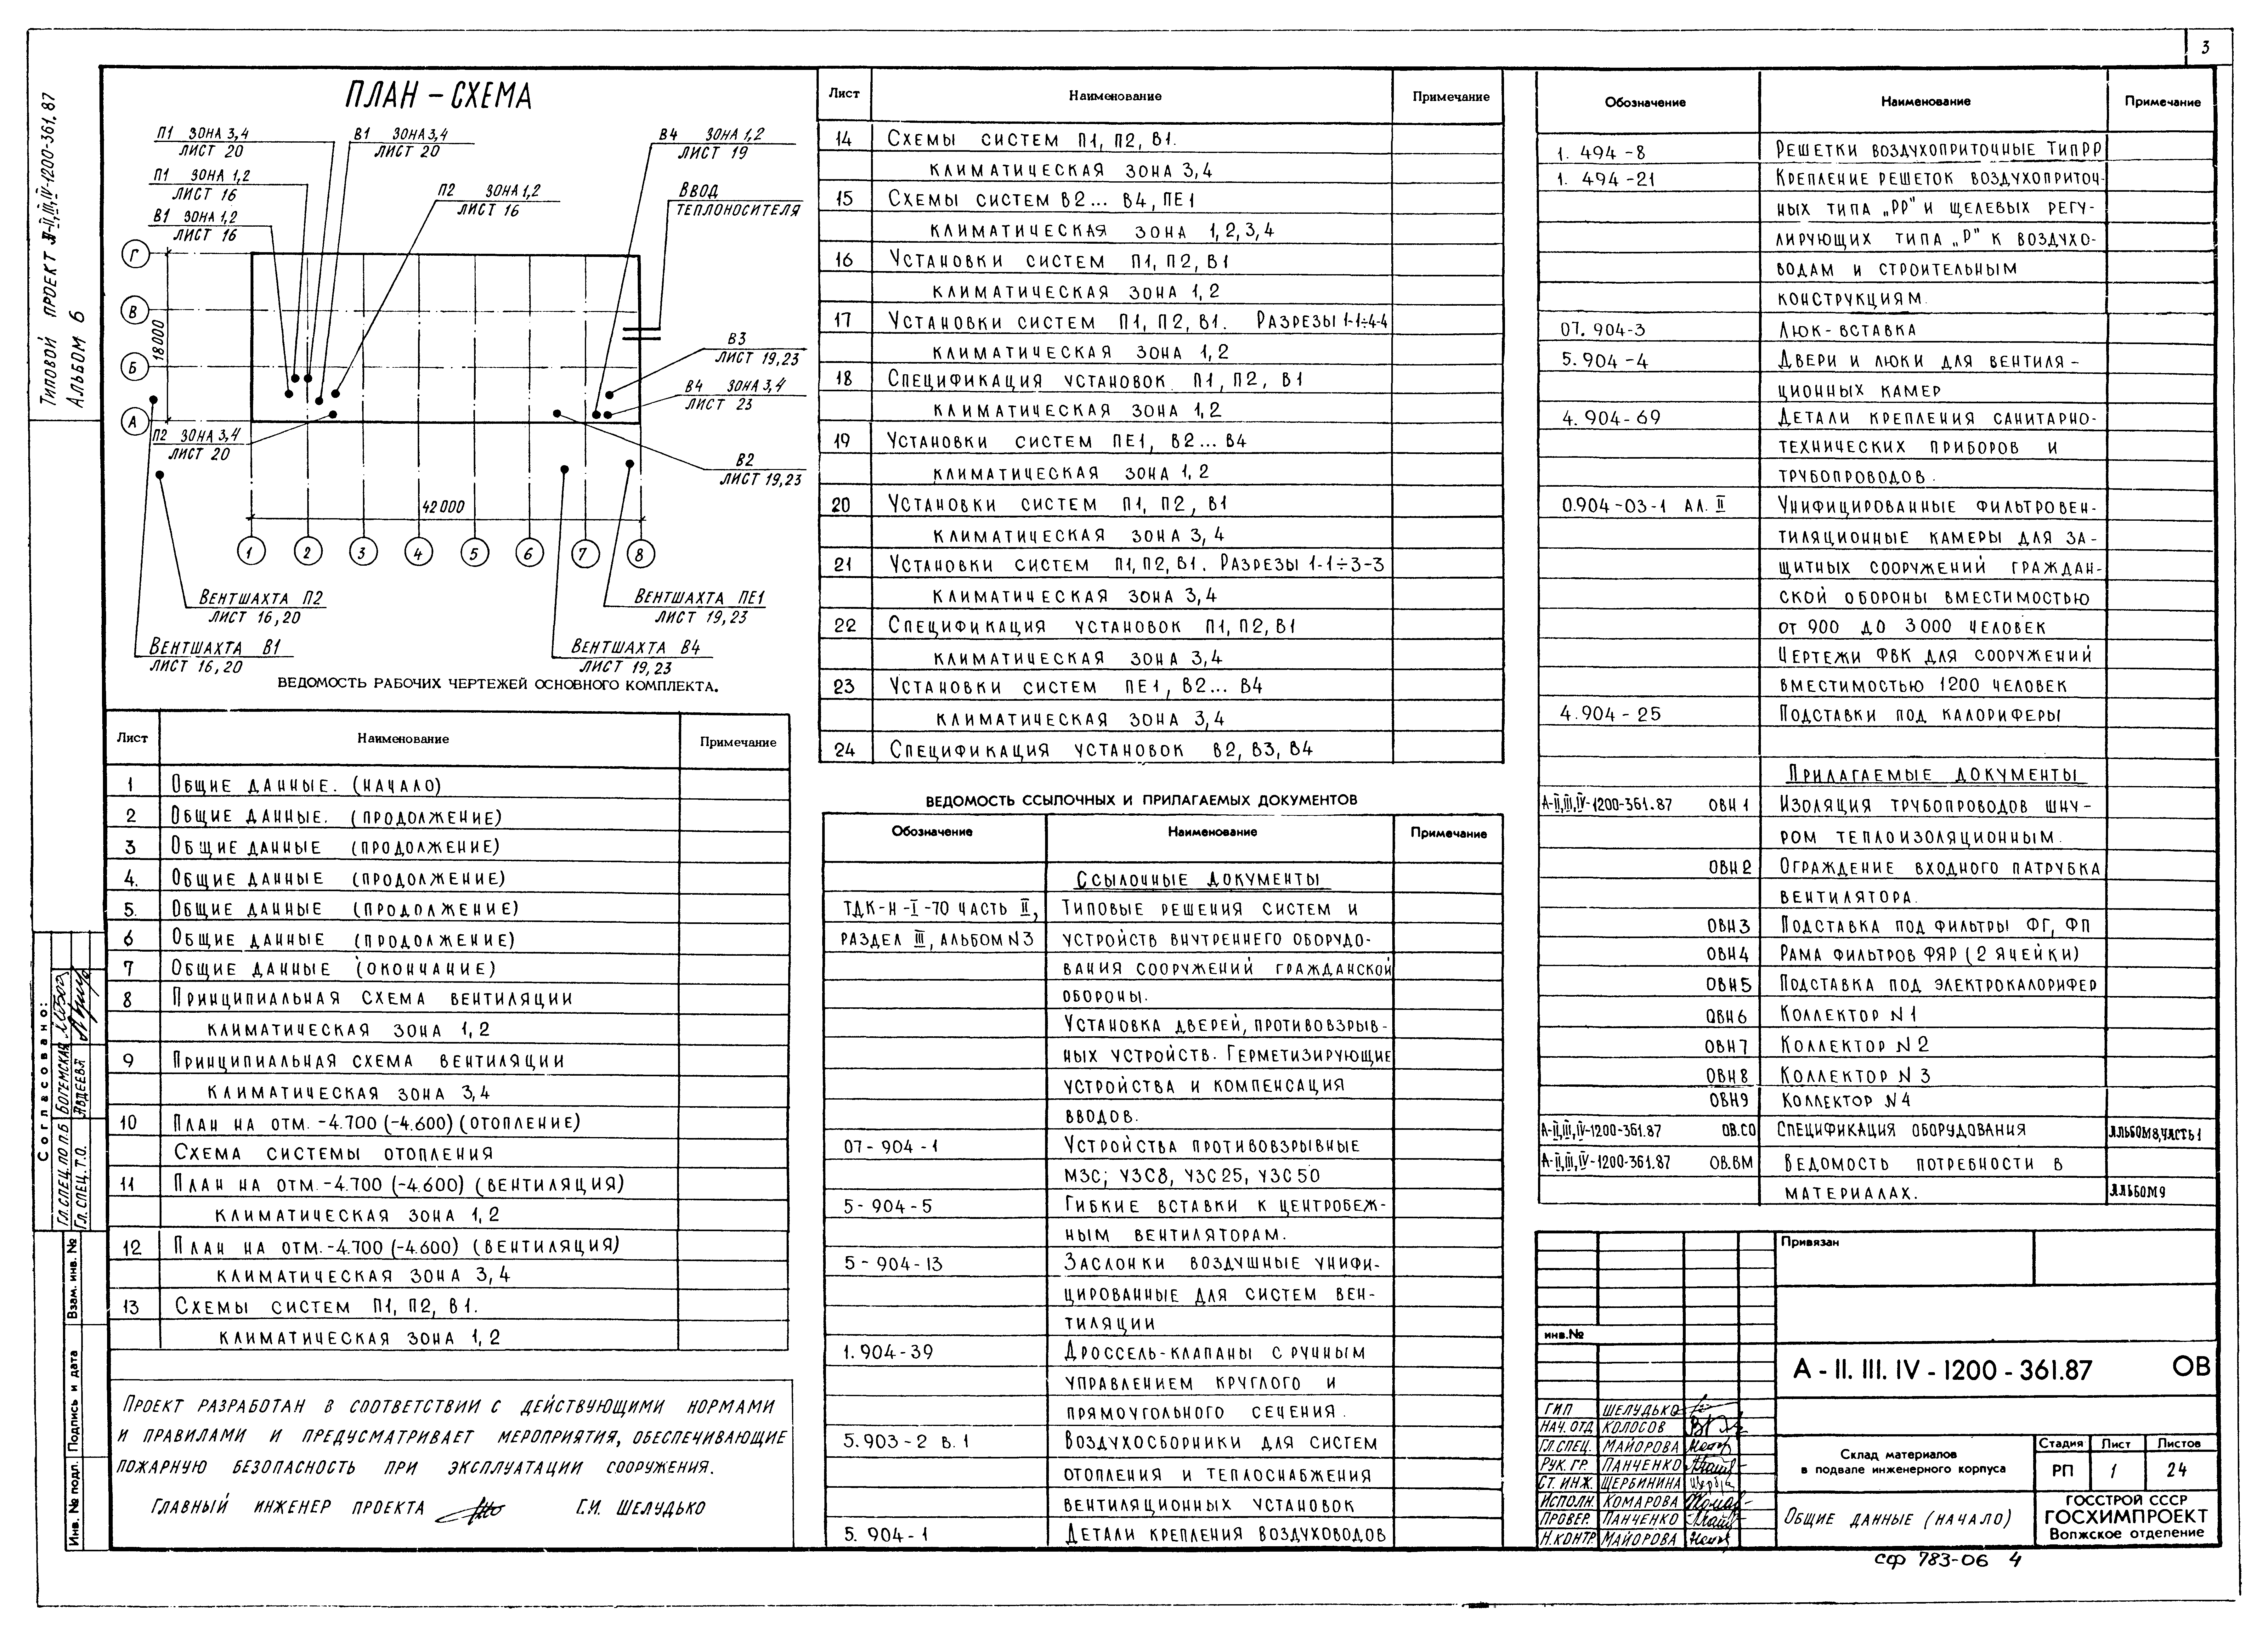 3
ТИПОВОЙ ПРОЕКТ А-II,III,IV-1200-361.87
АЛЬБОМ 6
ПЛАН – СХЕМА
П1 ЗОНА 3,4
ЛИСТ 20
В1 ЗОНА 3,4
ЛИСТ 20
В4 ЗОНА 1,2
ЛИСТ 19
П1 ЗОНА 1,2
ЛИСТ 16
П2 ЗОНА 1,2
ЛИСТ 16
ВВОД
ТЕПЛОНОСИТЕЛЯ
В1 ЗОНА 1,2
ЛИСТ 16
Г
В
Б
А
18000
В3
ЛИСТ 19,23
В4 ЗОНА 3,4
ЛИСТ 23
П2 ЗОНА 3,4
ЛИСТ 20
В2
ЛИСТ 19,23
42000
1 2 3 4 5 6 7 8
ВЕНТШАХТА П2
ЛИСТ 16,20
ВЕНТШАХТА ПЕ1
ЛИСТ 19,23
ВЕНТШАХТА В1
ЛИСТ 16,20
ВЕНТШАХТА В4
ЛИСТ 19,23
ВЕДОМОСТЬ РАБОЧИХ ЧЕРТЕЖЕЙ ОСНОВНОГО КОМПЛЕКТА.
Лист Наименование Примечание
1 ОБЩИЕ ДАННЫЕ. (НАЧАЛО)
2 ОБЩИЕ ДАННЫЕ. (ПРОДОЛЖЕНИЕ)
3 ОБЩИЕ ДАННЫЕ (ПРОДОЛЖЕНИЕ)
4. ОБЩИЕ ДАННЫЕ (ПРОДОЛЖЕНИЕ)
5. ОБЩИЕ ДАННЫЕ (ПРОДОЛЖЕНИЕ)
6 ОБЩИЕ ДАННЫЕ (ПРОДОЛЖЕНИЕ)
7 ОБЩИЕ ДАННЫЕ (ОКОНЧАНИЕ)
8 ПРИНЦИПИАЛЬНАЯ СХЕМА ВЕНТИЛЯЦИИ
КЛИМАТИЧЕСКАЯ ЗОНА 1,2
9 ПРИНЦИПИАЛЬНАЯ СХЕМА ВЕНТИЛЯЦИИ
КЛИМАТИЧЕСКАЯ ЗОНА 3,4
10 ПЛАН НА ОТМ. -4.700 (-4.600) (ОТОПЛЕНИЕ)
СХЕМА СИСТЕМЫ ОТОПЛЕНИЯ
11 ПЛАН НА ОТМ. -4.700 (-4.600) (ВЕНТИЛЯЦИЯ)
КЛИМАТИЧЕСКАЯ ЗОНА 1,2
12 ПЛАН НА ОТМ. -4.700 (-4.600) (ВЕНТИЛЯЦИЯ)
КЛИМАТИЧЕСКАЯ ЗОНА 3,4
13 СХЕМЫ СИСТЕМ П1, П2, В1.
КЛИМАТИЧЕСКАЯ ЗОНА 1,2
ПРОЕКТ РАЗРАБОТАН В СООТВЕТСТВИИ С ДЕЙСТВУЮЩИМИ НОРМАМИ
И ПРАВИЛАМИ И ПРЕДУСМАТРИВАЕТ МЕРОПРИЯТИЯ, ОБЕСПЕЧИВАЮЩИЕ
ПОЖАРНУЮ БЕЗОПАСНОСТЬ ПРИ ЭКСПЛУАТАЦИИ СООРУЖЕНИЯ.
ГЛАВНЫЙ ИНЖЕНЕР ПРОЕКТА Г.И. ШЕЛУДЬКО
Согласовано:
ГЛ.СПЕЦ. ПО П.Б БОГЕМСКАЯ
ГЛ. СПЕЦ. Т.О. АВДЕЕВА
Взам. инв. №
Подпись и дата
Инв. № подл.
Лист Наименование Примечание
14 СХЕМЫ СИСТЕМ П1, П2, В1.
КЛИМАТИЧЕСКАЯ ЗОНА 3,4
15 СХЕМЫ СИСТЕМ В2... В4, ПЕ1
КЛИМАТИЧЕСКАЯ ЗОНА 1,2,3,4
16 УСТАНОВКИ СИСТЕМ П1, П2, В1
КЛИМАТИЧЕСКАЯ ЗОНА 1,2
17 УСТАНОВКИ СИСТЕМ П1, П2, В1. РАЗРЕЗЫ 1-1÷4-4
КЛИМАТИЧЕСКАЯ ЗОНА 1,2
18 СПЕЦИФИКАЦИЯ УСТАНОВОК П1, П2, В1
КЛИМАТИЧЕСКАЯ ЗОНА 1,2
19 УСТАНОВКИ СИСТЕМ ПЕ1, В2... В4
КЛИМАТИЧЕСКАЯ ЗОНА 1,2
20 УСТАНОВКИ СИСТЕМ П1, П2, В1
КЛИМАТИЧЕСКАЯ ЗОНА 3,4
21 УСТАНОВКИ СИСТЕМ П1, П2, В1. РАЗРЕЗЫ 1-1÷3-3
КЛИМАТИЧЕСКАЯ ЗОНА 3,4
22 СПЕЦИФИКАЦИЯ УСТАНОВОК П1, П2, В1
КЛИМАТИЧЕСКАЯ ЗОНА 3,4
23 УСТАНОВКИ СИСТЕМ ПЕ1, В2... В4
КЛИМАТИЧЕСКАЯ ЗОНА 3,4
24 СПЕЦИФИКАЦИЯ УСТАНОВОК В2, В3, В4
ВЕДОМОСТЬ ССЫЛОЧНЫХ И ПРИЛАГАЕМЫХ ДОКУМЕНТОВ
Обозначение Наименование Примечание
ССЫЛОЧНЫЕ ДОКУМЕНТЫ
ТДК-Н-I-70 ЧАСТЬ II, ТИПОВЫЕ РЕШЕНИЯ СИСТЕМ И
РАЗДЕЛ III, АЛЬБОМ N3 УСТРОЙСТВ ВНУТРЕННЕГО ОБОРУДО-
ВАНИЯ СООРУЖЕНИЙ ГРАЖДАНСКОЙ
ОБОРОНЫ.
УСТАНОВКА ДВЕРЕЙ, ПРОТИВОВЗРЫВ-
НЫХ УСТРОЙСТВ. ГЕРМЕТИЗИРУЮЩИЕ
УСТРОЙСТВА И КОМПЕНСАЦИЯ
ВВОДОВ.
07-904-1 УСТРОЙСТВА ПРОТИВОВЗРЫВНЫЕ
МЗС; УЗС8, УЗС25, УЗС50
5-904-5 ГИБКИЕ ВСТАВКИ К ЦЕНТРОБЕЖ-
НЫМ ВЕНТИЛЯТОРАМ.
5-904-13 ЗАСЛОНКИ ВОЗДУШНЫЕ УНИФИ-
ЦИРОВАННЫЕ ДЛЯ СИСТЕМ ВЕН-
ТИЛЯЦИИ
1.904-39 ДРОССЕЛЬ-КЛАПАНЫ С РУЧНЫМ
УПРАВЛЕНИЕМ КРУГЛОГО И
ПРЯМОУГОЛЬНОГО СЕЧЕНИЯ.
5.903-2 в.1 ВОЗДУХОСБОРНИКИ ДЛЯ СИСТЕМ
ОТОПЛЕНИЯ И ТЕПЛОСНАБЖЕНИЯ
ВЕНТИЛЯЦИОННЫХ УСТАНОВОК
5.904-1 ДЕТАЛИ КРЕПЛЕНИЯ ВОЗДУХОВОДОВ
Обозначение Наименование Примечание
1.494-8 РЕШЕТКИ ВОЗДУХОПРИТОЧНЫЕ ТИП РР
1.494-21 КРЕПЛЕНИЕ РЕШЕТОК ВОЗДУХОПРИТОЧ-
НЫХ ТИПА „РР" И ЩЕЛЕВЫХ РЕГУ-
ЛИРУЮЩИХ ТИПА „Р" К ВОЗДУХО-
ВОДАМ И СТРОИТЕЛЬНЫМ
КОНСТРУКЦИЯМ.
07.904-3 ЛЮК-ВСТАВКА
5.904-4 ДВЕРИ И ЛЮКИ ДЛЯ ВЕНТИЛЯ-
ЦИОННЫХ КАМЕР
4.904-69 ДЕТАЛИ КРЕПЛЕНИЯ САНИТАРНО-
ТЕХНИЧЕСКИХ ПРИБОРОВ И
ТРУБОПРОВОДОВ.
0.904-03-1 АЛ. II УНИФИЦИРОВАННЫЕ ФИЛЬТРОВЕН-
ТИЛЯЦИОННЫЕ КАМЕРЫ ДЛЯ ЗА-
ЩИТНЫХ СООРУЖЕНИЙ ГРАЖДАН-
СКОЙ ОБОРОНЫ ВМЕСТИМОСТЬЮ
ОТ 900 ДО 3000 ЧЕЛОВЕК
ЧЕРТЕЖИ ФВК ДЛЯ СООРУЖЕНИЙ
ВМЕСТИМОСТЬЮ 1200 ЧЕЛОВЕК
4.904-25 ПОДСТАВКИ ПОД КАЛОРИФЕРЫ
ПРИЛАГАЕМЫЕ ДОКУМЕНТЫ
А-II,III,IV-1200-361.87 ОВН 1 ИЗОЛЯЦИЯ ТРУБОПРОВОДОВ ШНУ-
РОМ ТЕПЛОИЗОЛЯЦИОННЫМ.
ОВН 2 ОГРАЖДЕНИЕ ВХОДНОГО ПАТРУБКА
ВЕНТИЛЯТОРА.
ОВН 3 ПОДСТАВКА ПОД ФИЛЬТРЫ ФГ, ФП
ОВН4 РАМА ФИЛЬТРОВ ФЯР (2 ЯЧЕЙКИ)
ОВН5 ПОДСТАВКА ПОД ЭЛЕКТРОКАЛОРИФЕР
ОВН6 КОЛЛЕКТОР N1
ОВН7 КОЛЛЕКТОР N2
ОВН8 КОЛЛЕКТОР N3
ОВН9 КОЛЛЕКТОР N4
А-II,III,IV-1200-361.87 ОВ.СО СПЕЦИФИКАЦИЯ ОБОРУДОВАНИЯ АЛЬБОМ 8, ЧАСТЬ 1
А-II,III,IV-1200-361.87 ОВ.ВМ ВЕДОМОСТЬ ПОТРЕБНОСТИ В
МАТЕРИАЛАХ. АЛЬБОМ 9
Привязан
инв.№
А - II. III. IV - 1200 - 361.87 ОВ
ГИП ШЕЛУДЬКО
НАЧ. ОТД КОЛОСОВ
ГЛ.СПЕЦ. МАЙОРОВА
РУК. ГР. ПАНЧЕНКО
СТ. ИНЖ. ЩЕРБИНИНА
ИСПОЛН. КОМАРОВА
ПРОВЕР. ПАНЧЕНКО
Н.КОНТР. МАЙОРОВА
Склад материалов
в подвале инженерного корпуса
Стадия Лист Листов
РП 1 24
ОБЩИЕ ДАННЫЕ (НАЧАЛО)
ГОССТРОЙ СССР
ГОСХИМПРОЕКТ
Волжское отделение
СФ 783-06 4